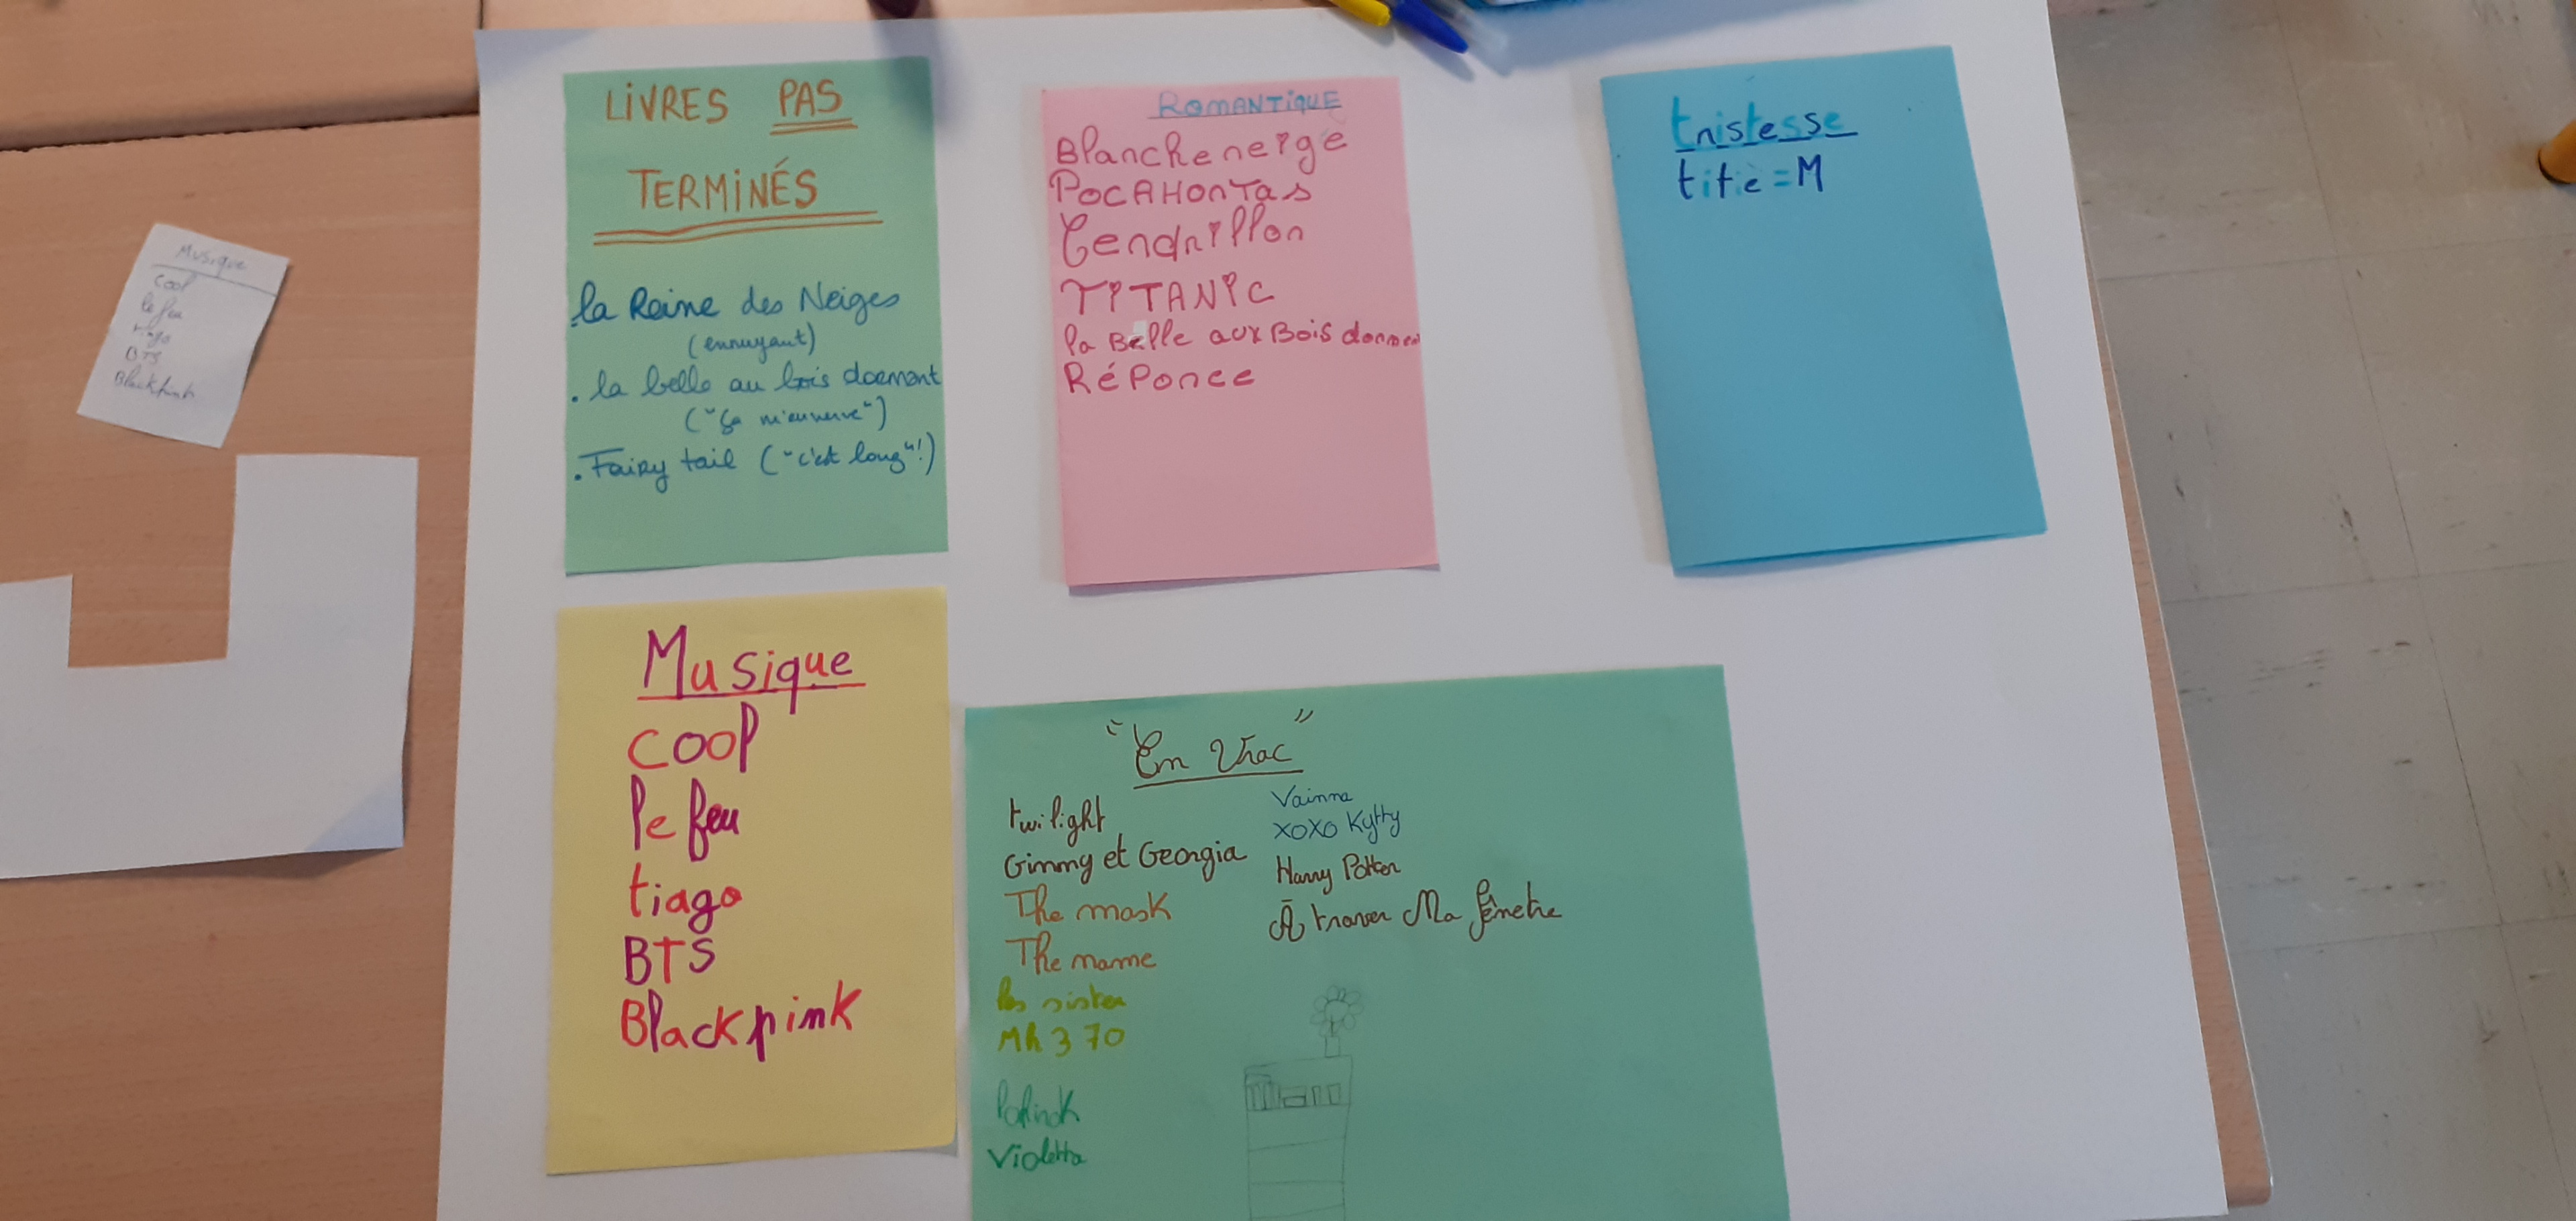 LIVRES PAS
TERMINÉS
la Reine des Neiges
(ennuyant)
. la belle au bois dormant
("ça m'énerve")
. Fairy tail ("c'est long"!)
ROMANTIQUE
Blanche neige
POCAHONTAS
Cendrillon
TITANIC
la Belle aux Bois dormen
RéPonce
tristesse
titie = M
Musique
cool
le feu
tiago
BTS
Blackpink
Musique
COOl
le feu
tiago
BTS
Blackpink
"En Vrac"
twilight
Gimmy et Georgia
The mask
The name
les sister
Mh 370
Violetta
Vainna
XOXO Kytty
Harry Potter
À traver Ma fenêtre